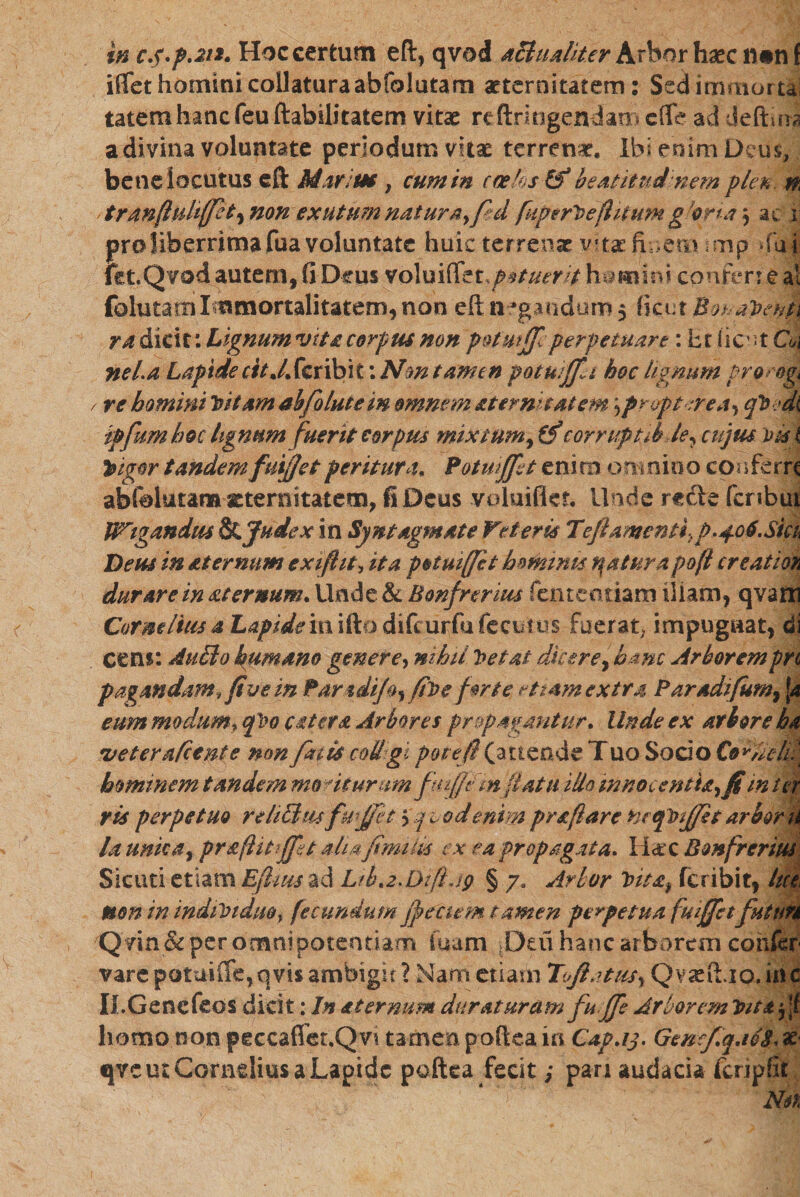 in c.s.p.212. Hoc certum eſt, qvod actualiter Arbor hæc non f
iſſet homini collatura abſolutam æternitatem: Sed immorta
tatem hanc ſeu ſtabilitatem vitæ reſtringendam eſſe ad deſtina
a divina voluntate periodum vitæ terrenæ. Ibi enim Deus,
bene locutus eſt Marius, cum in cœlos & beatitudinem plen
tranſtuliſſet, non exutum natura, ſed ſuperveſtitum gloria; ac
pro liberrima ſua voluntate huic terrenæ vitæ finem
ſet. Qvod autem, ſi Deus voluiſſet, potuerit homini conferre a
ſolutam Immortalitatem, non eſt negandum; ſicut Bonaventu
ra dicit: Lignum vitæ corpus non potuiſſe perpetuare: Et licet Co
nel. a Lapide cit. l. ſcribit: Non tamen potuiſſet hoc lignum prorog
re homini vitam abſolute in omnem æternitatem; propterea, qvod
ipſum hoc lignum fuerit corpus mixtum, & corruptibile, cujus vis
vigor tandem fuiſſet peritura. Potuiſſet enim omnino conferre
abſolutam æternitatem, ſi Deus voluiſſet. Unde recte ſcribu
Wigandus & Judex in Syntagmate Veteris Teſtamenti, p.406. Sicu
Deus in æternum exiſtit, ita potuiſſet hominis natura poſt creation
durare in æternum. Unde & Bonfrerius ſententiam illam, qvam
Cornelius a Lapide in iſto diſcurſu ſecutus fuerat, impugnat, di
cens: Aucto humano genere, nihil vetat dicere, hanc Arborem pro
pagandam, ſive in Paradiſo, ſive forte etiam extra Paradiſum,
eum modum, qvo cætera Arbores propagantur. Unde ex arbore ha
veteraſcente non ſatis colligi poteſt (attende Tuo Socio Corneli
hominem tandem moriturum fuiſſe in ſtatu illo innocentiæ, ſi in ter
ris perpetuo relictus fuiſſet; qvod enim præſtare neqviſſet arbor il
la unica, præſtitiſſet alia ſimilis ex ea propagata. Hæc Bonfrerius
Sicuti etiam Eſtius ad Lib.2. Diſt.19 § 7. Arbor vitæ, ſcribit, licet
non in individuo, ſecundum ſpeciem tamen perpetua fuiſſet futura
Qvin & per omnipotentiam ſuam Deū hanc arborem conſer
vare potuiſſe, qvis ambigit? Nam etiam Toſtatus, Qvæſt.10. in c
II. Geneſeos dicit: In æternum duraturam fuiſſe Arborem vitæ, ſ
homo non peccaſſet. Qvi tamen poſtea in Cap.13. Geneſ.q.168. æ
qve ut Cornelius a Lapide poſtea fecit; pari audacia ſcripſit
Non